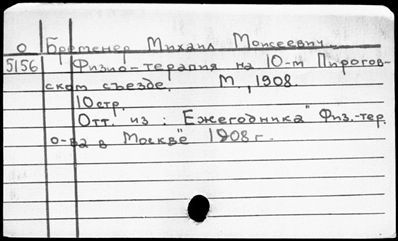 О Бременер Михаил Моисеевич.
5156 Физио-терапия на 10-м Пирогов-
ском съезде. М., 1908.
10 стр.
Отт. из: „Ежегодника" Физ.-тер.
о-ва в Москве" 1908 г.